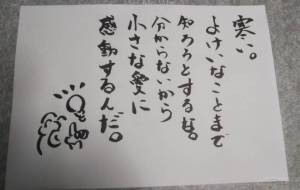 寒い。
よけいなことまで
知ろうとするな。
分からないから
小さな愛に
感動するんだ。